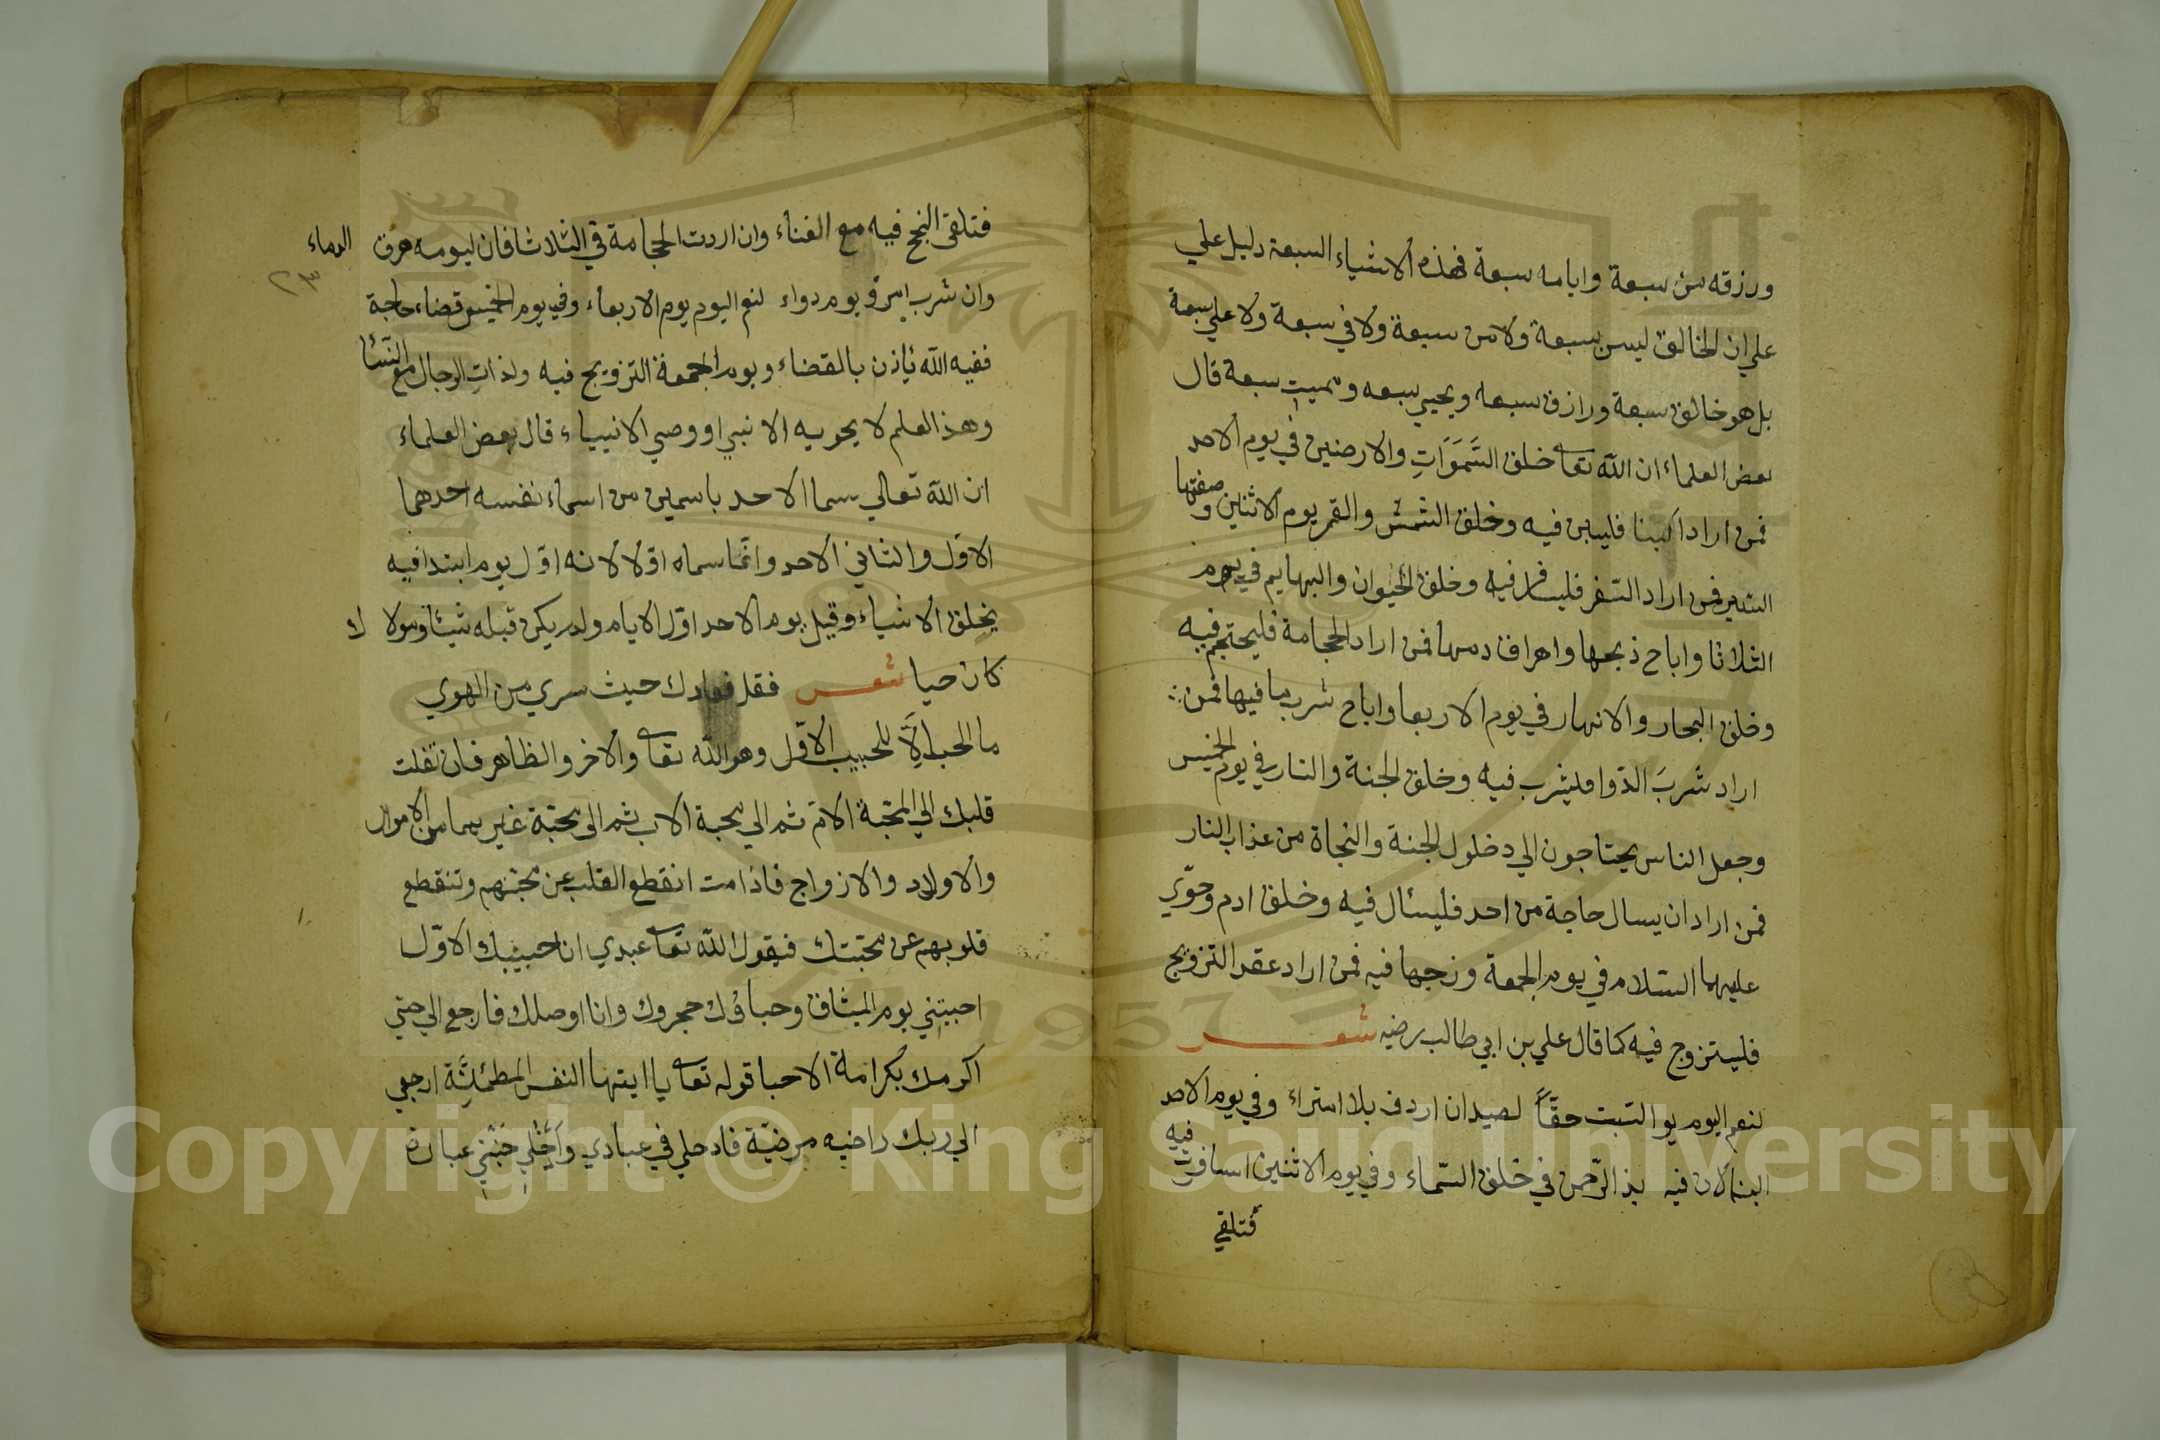 ورزقه من سبعة وايامه سبعة فهذه الاشياء السبعة دليل علي
علي ان الخالق ليس بسبعة ولا من سبعة ولا في سبعة ولا علي سبعة
بل هو خالق سبعة ورازق سبعه ويحيي سبعه ويميت سبعة قال
بعض العلماء ان الله تعالى خلق السَّمَوَاتِ والارضين في يوم الاحد
فمن اراد البنا فليبن فيه وخلق الشمس والقمر يوم الاثنين وصفتها
السير فمن اراد السفر فليسافر فيه وخلق الحيوان والبهايم في يوم
الثلاثا واباح ذبحها واهراق دمها فمن اراد الحجامة فليحتجم فيه
وخلق البحار والانهار في يوم الاربعا واباح شرب ما فيها فمن
اراد شربَ الدّوا فليشرب فيه وخلق الجنة والنار في يوم الخميس
وجعل الناس يحتاجون الي دخلول الجنة والنجاة من عذاب النار
فمن اراد ان يسال حاجة من احد فليسأل فيه وخلق ادم وحوّي
عليهما السّلام في يوم الجمعة وزوجها فيه فمن اراد عقد التزويج
فليتزوج فيه كما قال علي بن ابي طالب رضيه شعر
لنعم اليوم يو السّبت حقّاً لصيد ان اردف بلا استراء وفي يوم الاحد
البنا لان فيه بدا الرّحمن في خلق السّماء وفي يوم الاثنين اسافرت فيه
فتلقي
فتلقى النجح فيه مع الغناء وان اردت الحجامة في الثلاثا فان ليومه هرق الدماء
٢٣
وان شرب امرؤ يوم دواء لنعم اليوم يوم الاربعاء وفي يوم الخميس قضاء حاجة
ففيه الله ياذن بالقضاء ويوم الجمعة التزويج فيه ولذات الرجال مع النّسا
وهذا العلم لا يحويه الا نبي او وصي الانبياء قال بعض العلماء
ان الله تعالي سما الاحد باسمين من اسماء نفسه احدهما
الاوّل والثاني الاحد وانّما سماه اوّلا لانه اوّل يوم ابتدا فيه
بخلق الاشياء وقيل يوم الاحد اوّل الايام ولم يكن قبله شيئا
كان حيا شعر فقل فوادك حيث سري من الهوي
ما الحب اِلَّا للحبيب الاوّل وهو الله تعالى والآخر والظاهر فان نقلت
قلبك الي المحبة الامّ ثم الي محبة الاب ثم الى محبّة غيرهما من الاموال
والاولاد والازواج فاذا مت انقطع القلب عن محبّتهم وتنقطع
قلوبهم عن محبّتك فيقول الله تعالى عبدي انا حبيبك الاوّل
احببتني يوم الميثاق وحباؤك هجروك وانا اوصلك فارجع الي حتي
اكرمك بكرامة الاحبا قوله تعالى يا ايتها النفس المطمئنّة ارجعي
الي ربك راضيه مرضيّة فادخلي في عبادي وادخلي جنّتي